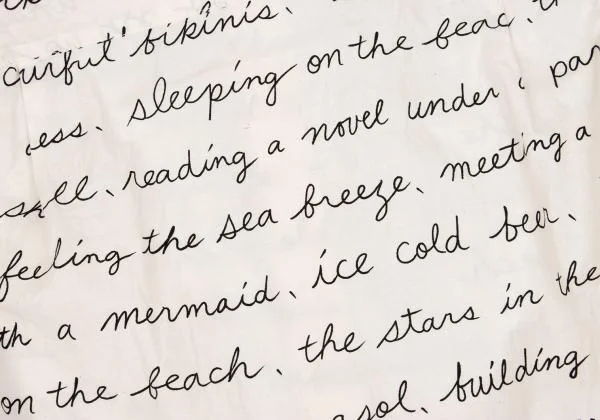 bikinis.
ess. sleeping on the beac
reading a novel under
feeling the sea breeze. meeting a
th a mermaid. ice cold beer.
on the beach. the stars in the
sol. building